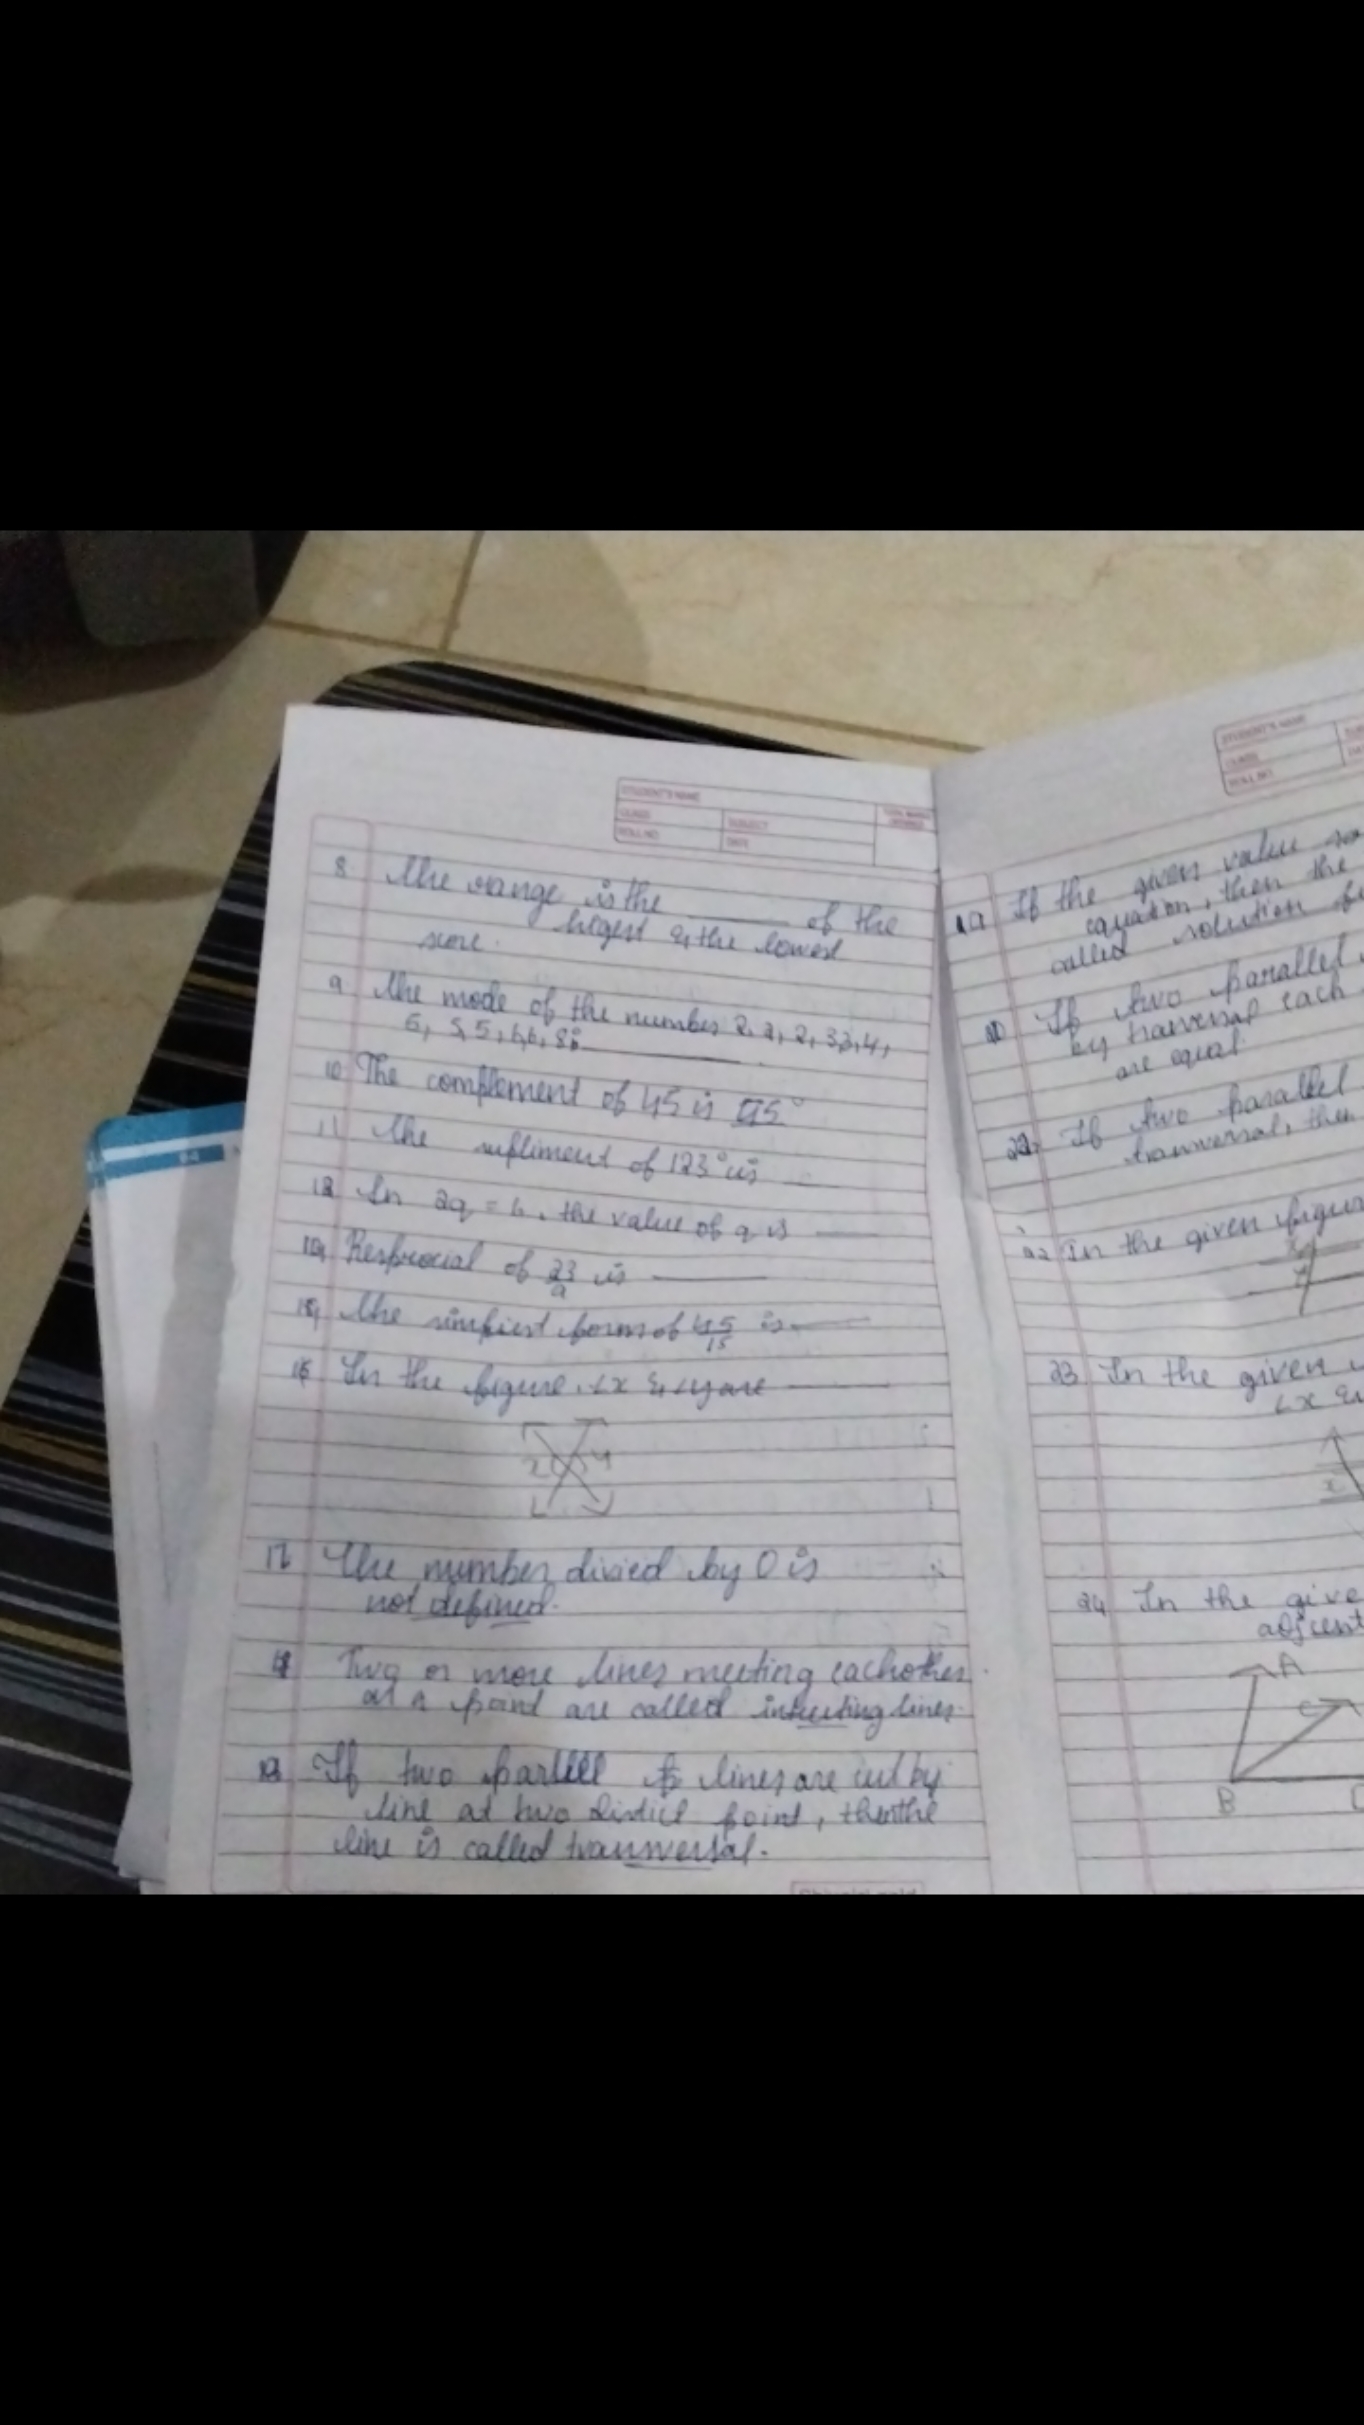 STUDENT'S NAME
CLASS SUBJECT
ROLL NO DATE
8 The range is the ______ of the
higest & the lowest
score.
9 The mode of the number 2, 2, 2, 3 3, 4,
5, 5, 6, 6, 8 is ______
10 The complement of 45 is 45°
11 The supliment of 123° is __
12 In 2q = 6, the value of q is ____
Resprocial of 23/9 is ______
15, The simplest form of 45/15 is ____
16 In the figure, ∠x & ∠y are ______
x y
17 The number divied by 0 is
not defined.
Two or more lines meeting eachother
at a point are called intersecting lines.
If two parllel lines are cut by
line at two distict point, then the
line is called tranversal.
STUDENT'S NAME
CLASS
ROLL NO
19 If the given value
equation, then the
called solution
If two parallel
by tranversal each
are equal.
If two parallel
tranversal, then
22 In the given figur
x
y
23 In the given
∠x &
x
24 In the give
adjcent
A
C
B